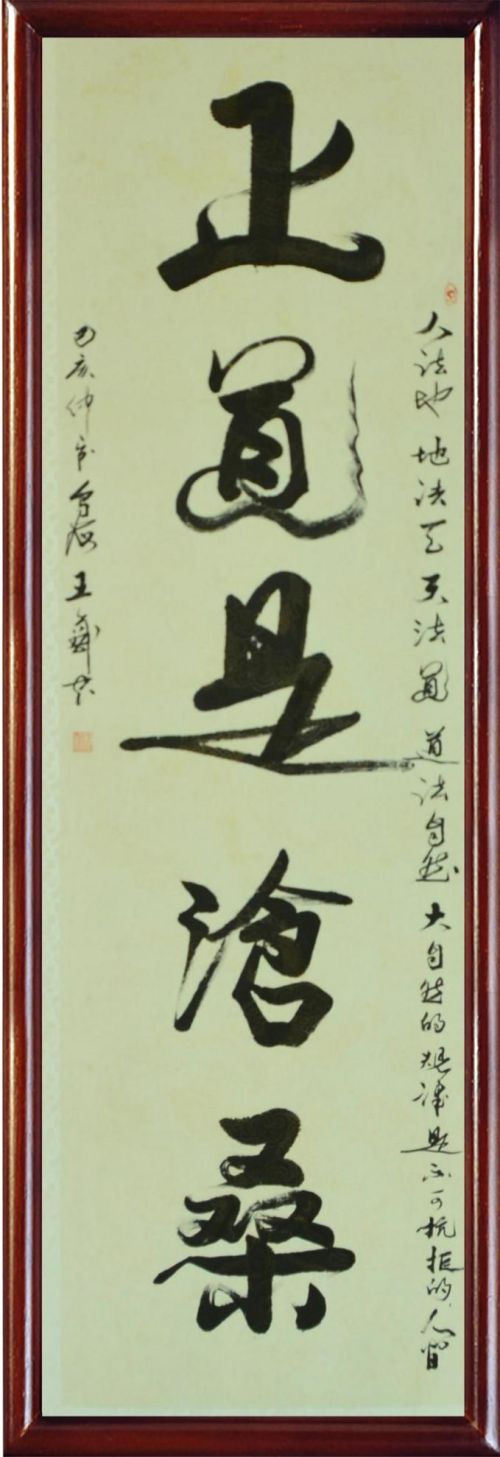 人法地 地法天 天法道 道法自然 大自然的规律是不可抗拒的 人皆
正道是沧桑
己亥仲 王